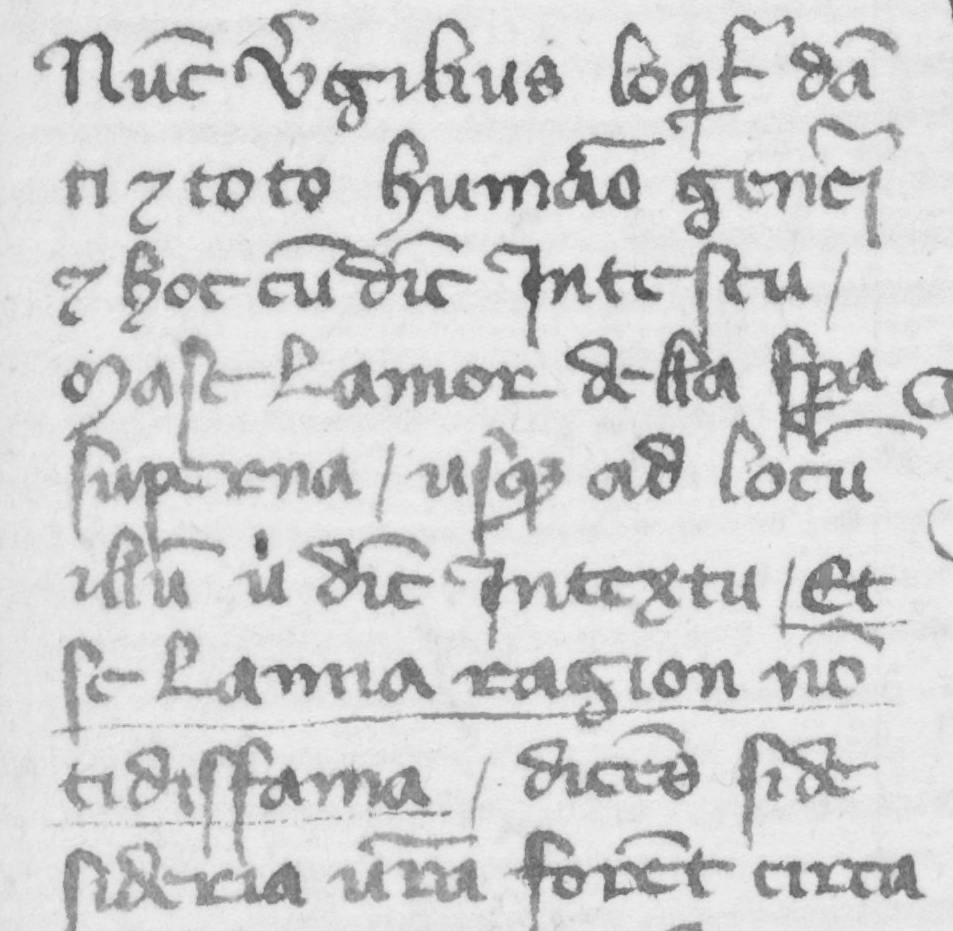 Nūc Vͥgilius loqͥt̄ dā
ti ⁊ toto humāo gen̄ei
⁊ hoc cū dic̄ In te stu /
Mase Lamor della sꝑa
superna / usqꝫ ad locū
illū u dic̄ In textu / Et
se Lamia ragion nō
ti disfama / dicēs si de
sideria ur̄a forēt circa